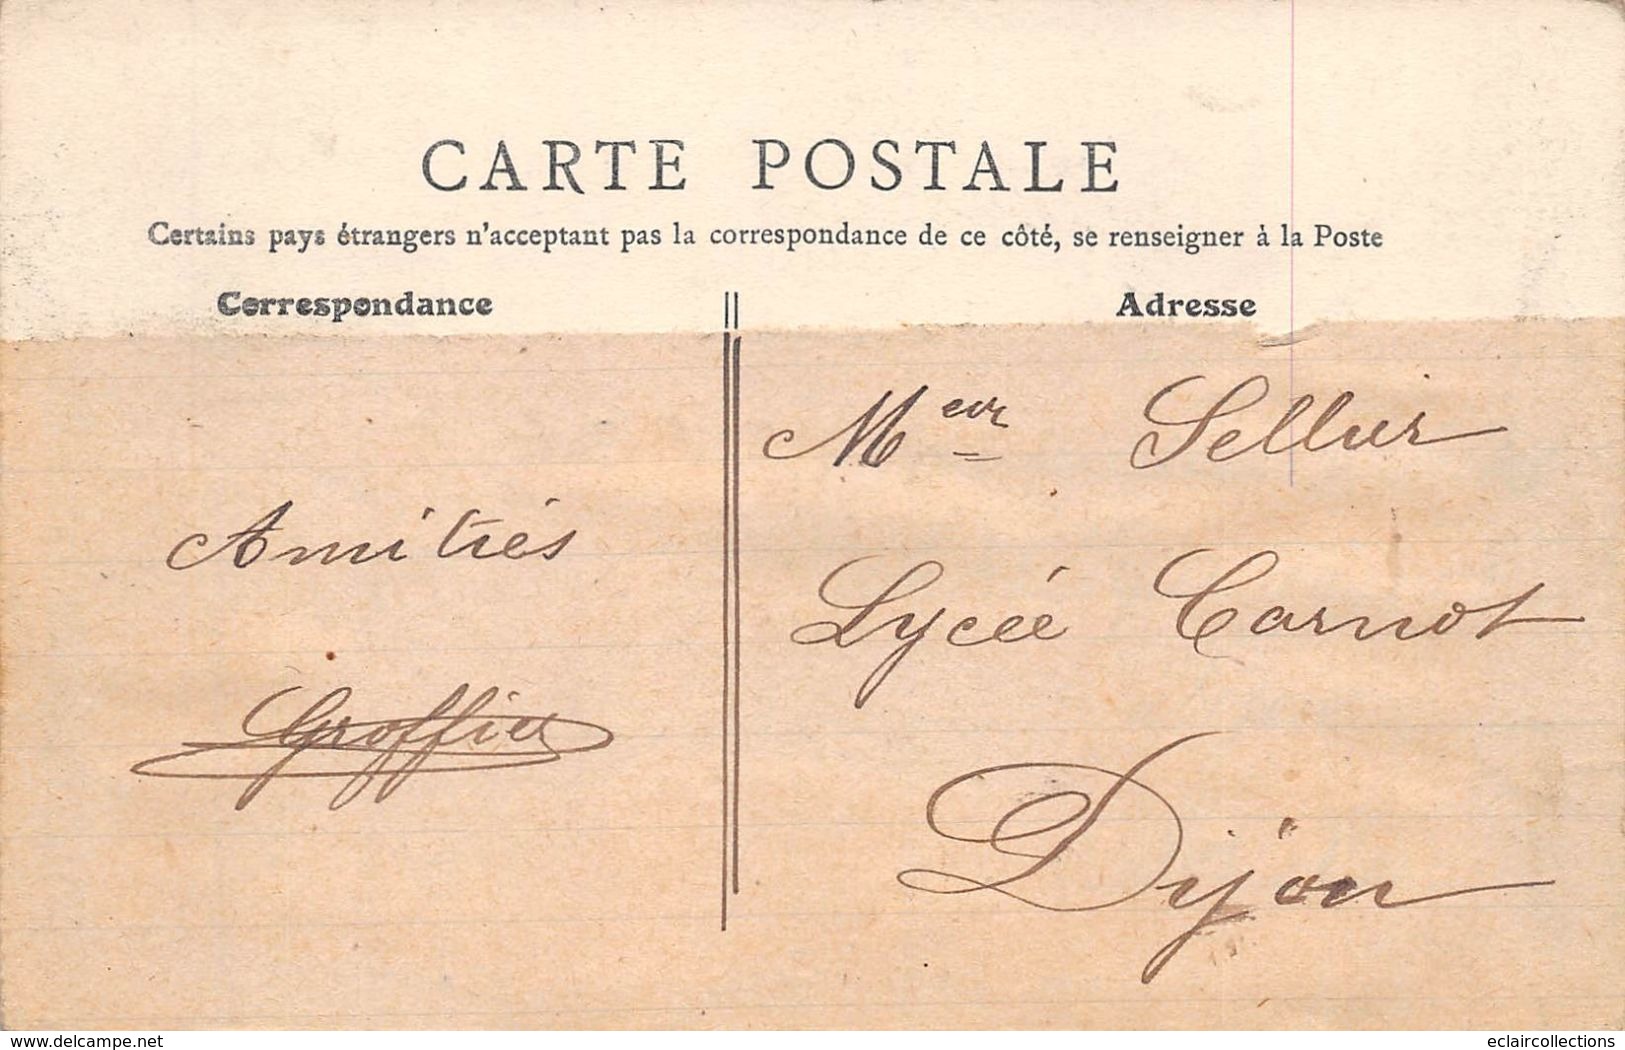 CARTE POSTALE
Certains pays étrangers n'acceptant pas la correspondance de ce côté, se renseigner à la Poste
Correspondance
Adresse
Meur Sellier
Amitiés
Lycée Carnot
Groffier
Dijon
www.delcampe.net
eclaircollections